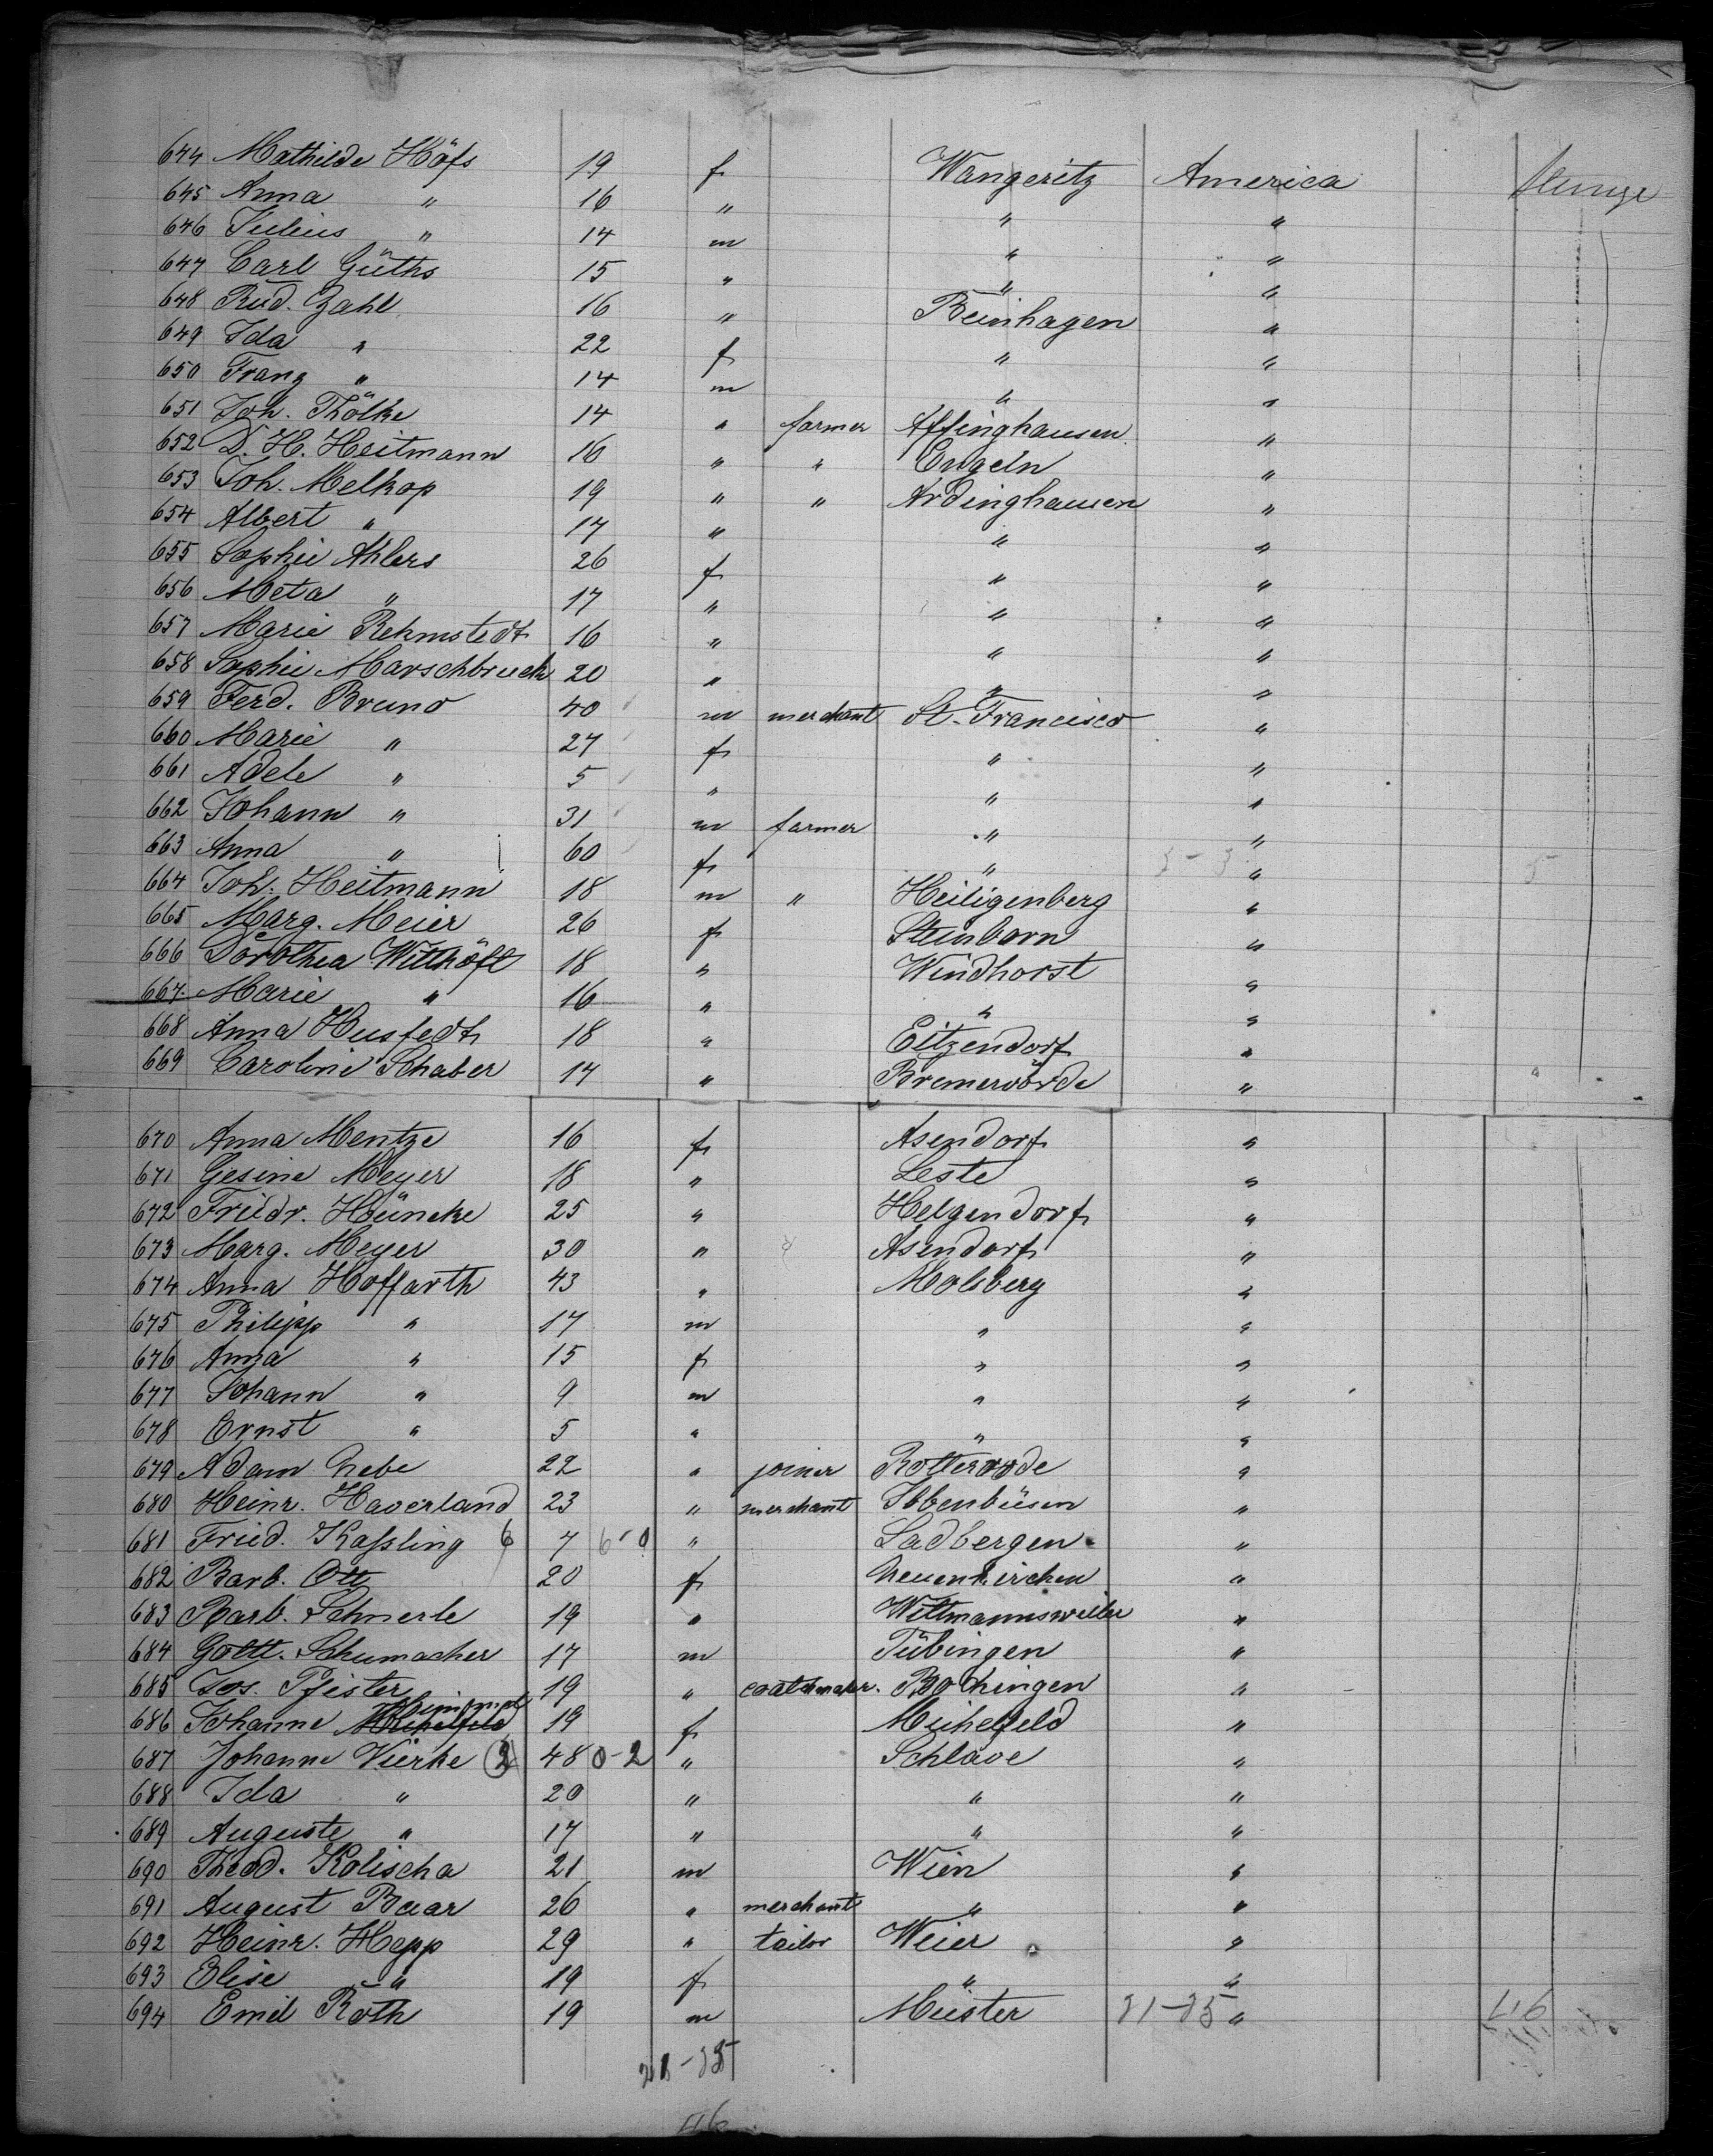 644 Mathilde Höfs 19 f Wangeritz America
645 Anna " 16 " " "
646 Julius " 14 m " "
647 Carl Güths 15 " " "
648 Rud. Zahl 16 " Beinhagen "
649 Ida " 22 f " "
650 Franz " 14 m " "
651 Joh. Thölke 14 " farmer Affinghausen "
652 D. H. Heitmann 16 " " Engeln "
653 Joh. Melkop 19 " " Ardinghausen "
654 Albert " 17 " " "
655 Sophie Ahlers 26 f " "
656 Meta " 17 " " "
657 Marie Rehmstedt 16 " " "
658 Sophie Marschbruch 20 " " "
659 Ferd. Bruno 40 m merchant St. Francisco "
660 Marie " 27 f " "
661 Adele " 5 " " "
662 Johann " 31 m farmer " "
663 Anna " 60 f " "
664 Joh. Heitmann 18 m " Heiligenberg "
665 Marg. Meier 26 f Steinborn "
666 Dorothea Witthöft 18 " Windhorst "
667 Marie " 16 " " "
668 Anna Husfedt 18 " Eitzendorf "
669 Caroline Schaber 17 " Bremervörde "
670 Anna Mentze 16 f Asendorf "
671 Gesine Meyer 18 " Leste "
672 Friedr. Hüncke 25 " Helgendorf "
673 Marg. Meyer 30 " Asendorf "
674 Anna Hoffarth 43 " Molsberg "
675 Philipp " 17 m " "
676 Anna " 15 f " "
677 Johann " 9 m " "
678 Ernst " 5 " " "
679 Adam Nebe 22 " joiner Rotterode "
680 Heinr. Haverland 23 " merchant Ibbenbüsen "
681 Fried. Kaßling 6 7 6-0 " Ladbergen "
682 Barb. Ott 20 f Neuenkirchen "
683 Barb. Schnerle 19 " Wittmannsweiler "
684 Gottl. Schumacher 17 m Tübingen "
685 Jos. Pfister 19 " coatmaker. Bochingen "
686 Johanne 19 f Michelfeld "
687 Johanne Vierke 2 48 0-2 " Schlave "
688 Ida " 20 " " "
689 Auguste " 17 " " "
690 Theod. Kolischa 21 m Wien "
691 August Baar 26 " merchant " "
692 Heinr. Hepp 29 " tailor Weier "
693 Elise " 19 f " "
694 Emil Roth 19 m Müster "